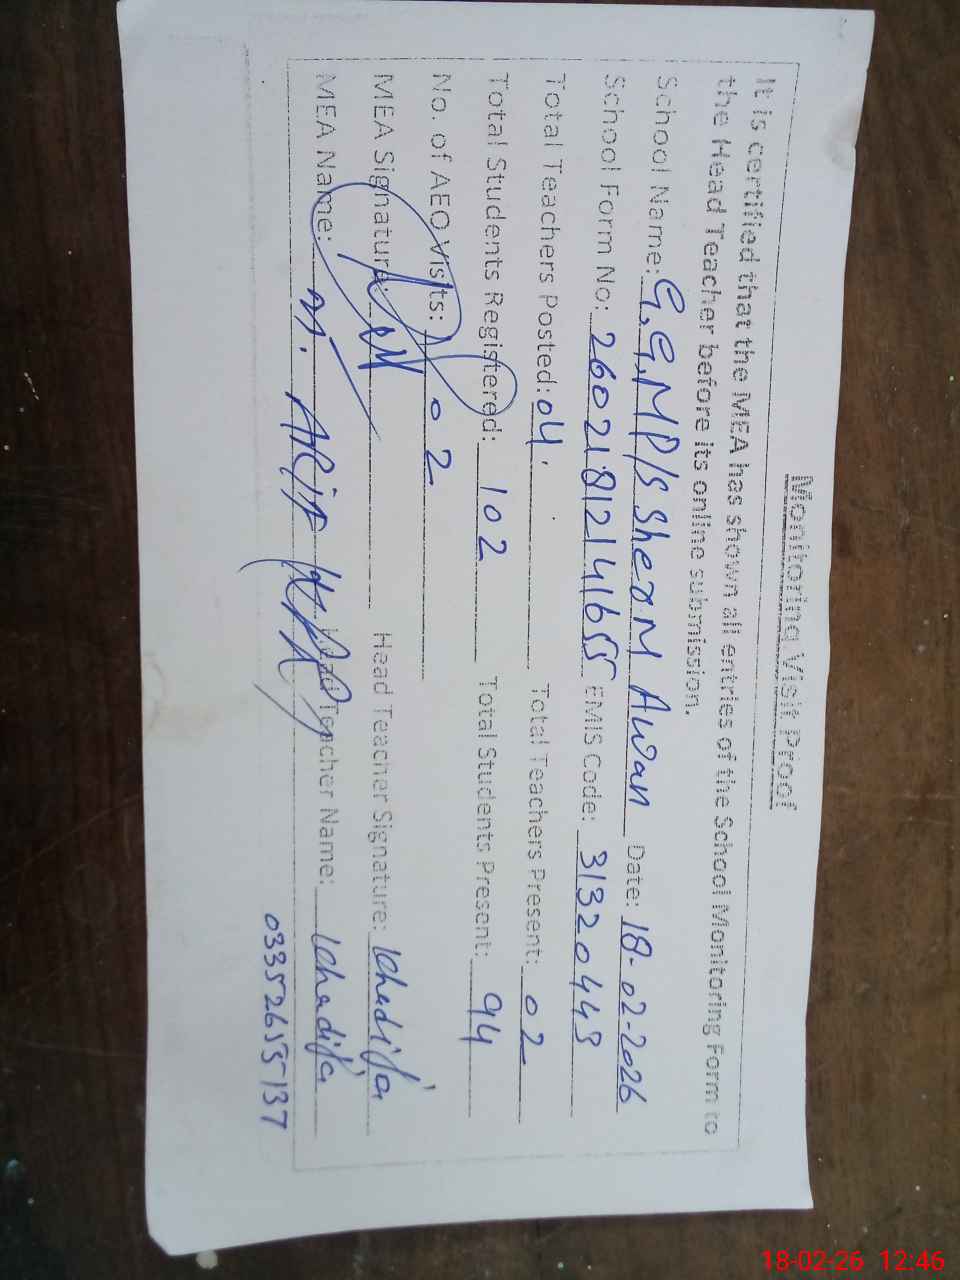 Monitoring Visit Proof
It is certified that the MEA has shown all entries of the School Monitoring Form to
the Head Teacher before its online submission.
School Name: G,G,MP/S Sher M Awan Date: 18-02-2026
School Form No: 26021812141655 EMIS Code: 31320443
Total Teachers Posted: 04. Total Teachers Present: 02
Total Students Registered: 102 Total Students Present: 94
No. of AEO Visits: 02
MEA Signature: Head Teacher Signature: Khadija
MEA Name: M. Head Teacher Name: Khadija
03352655137
18-02-26 12:46